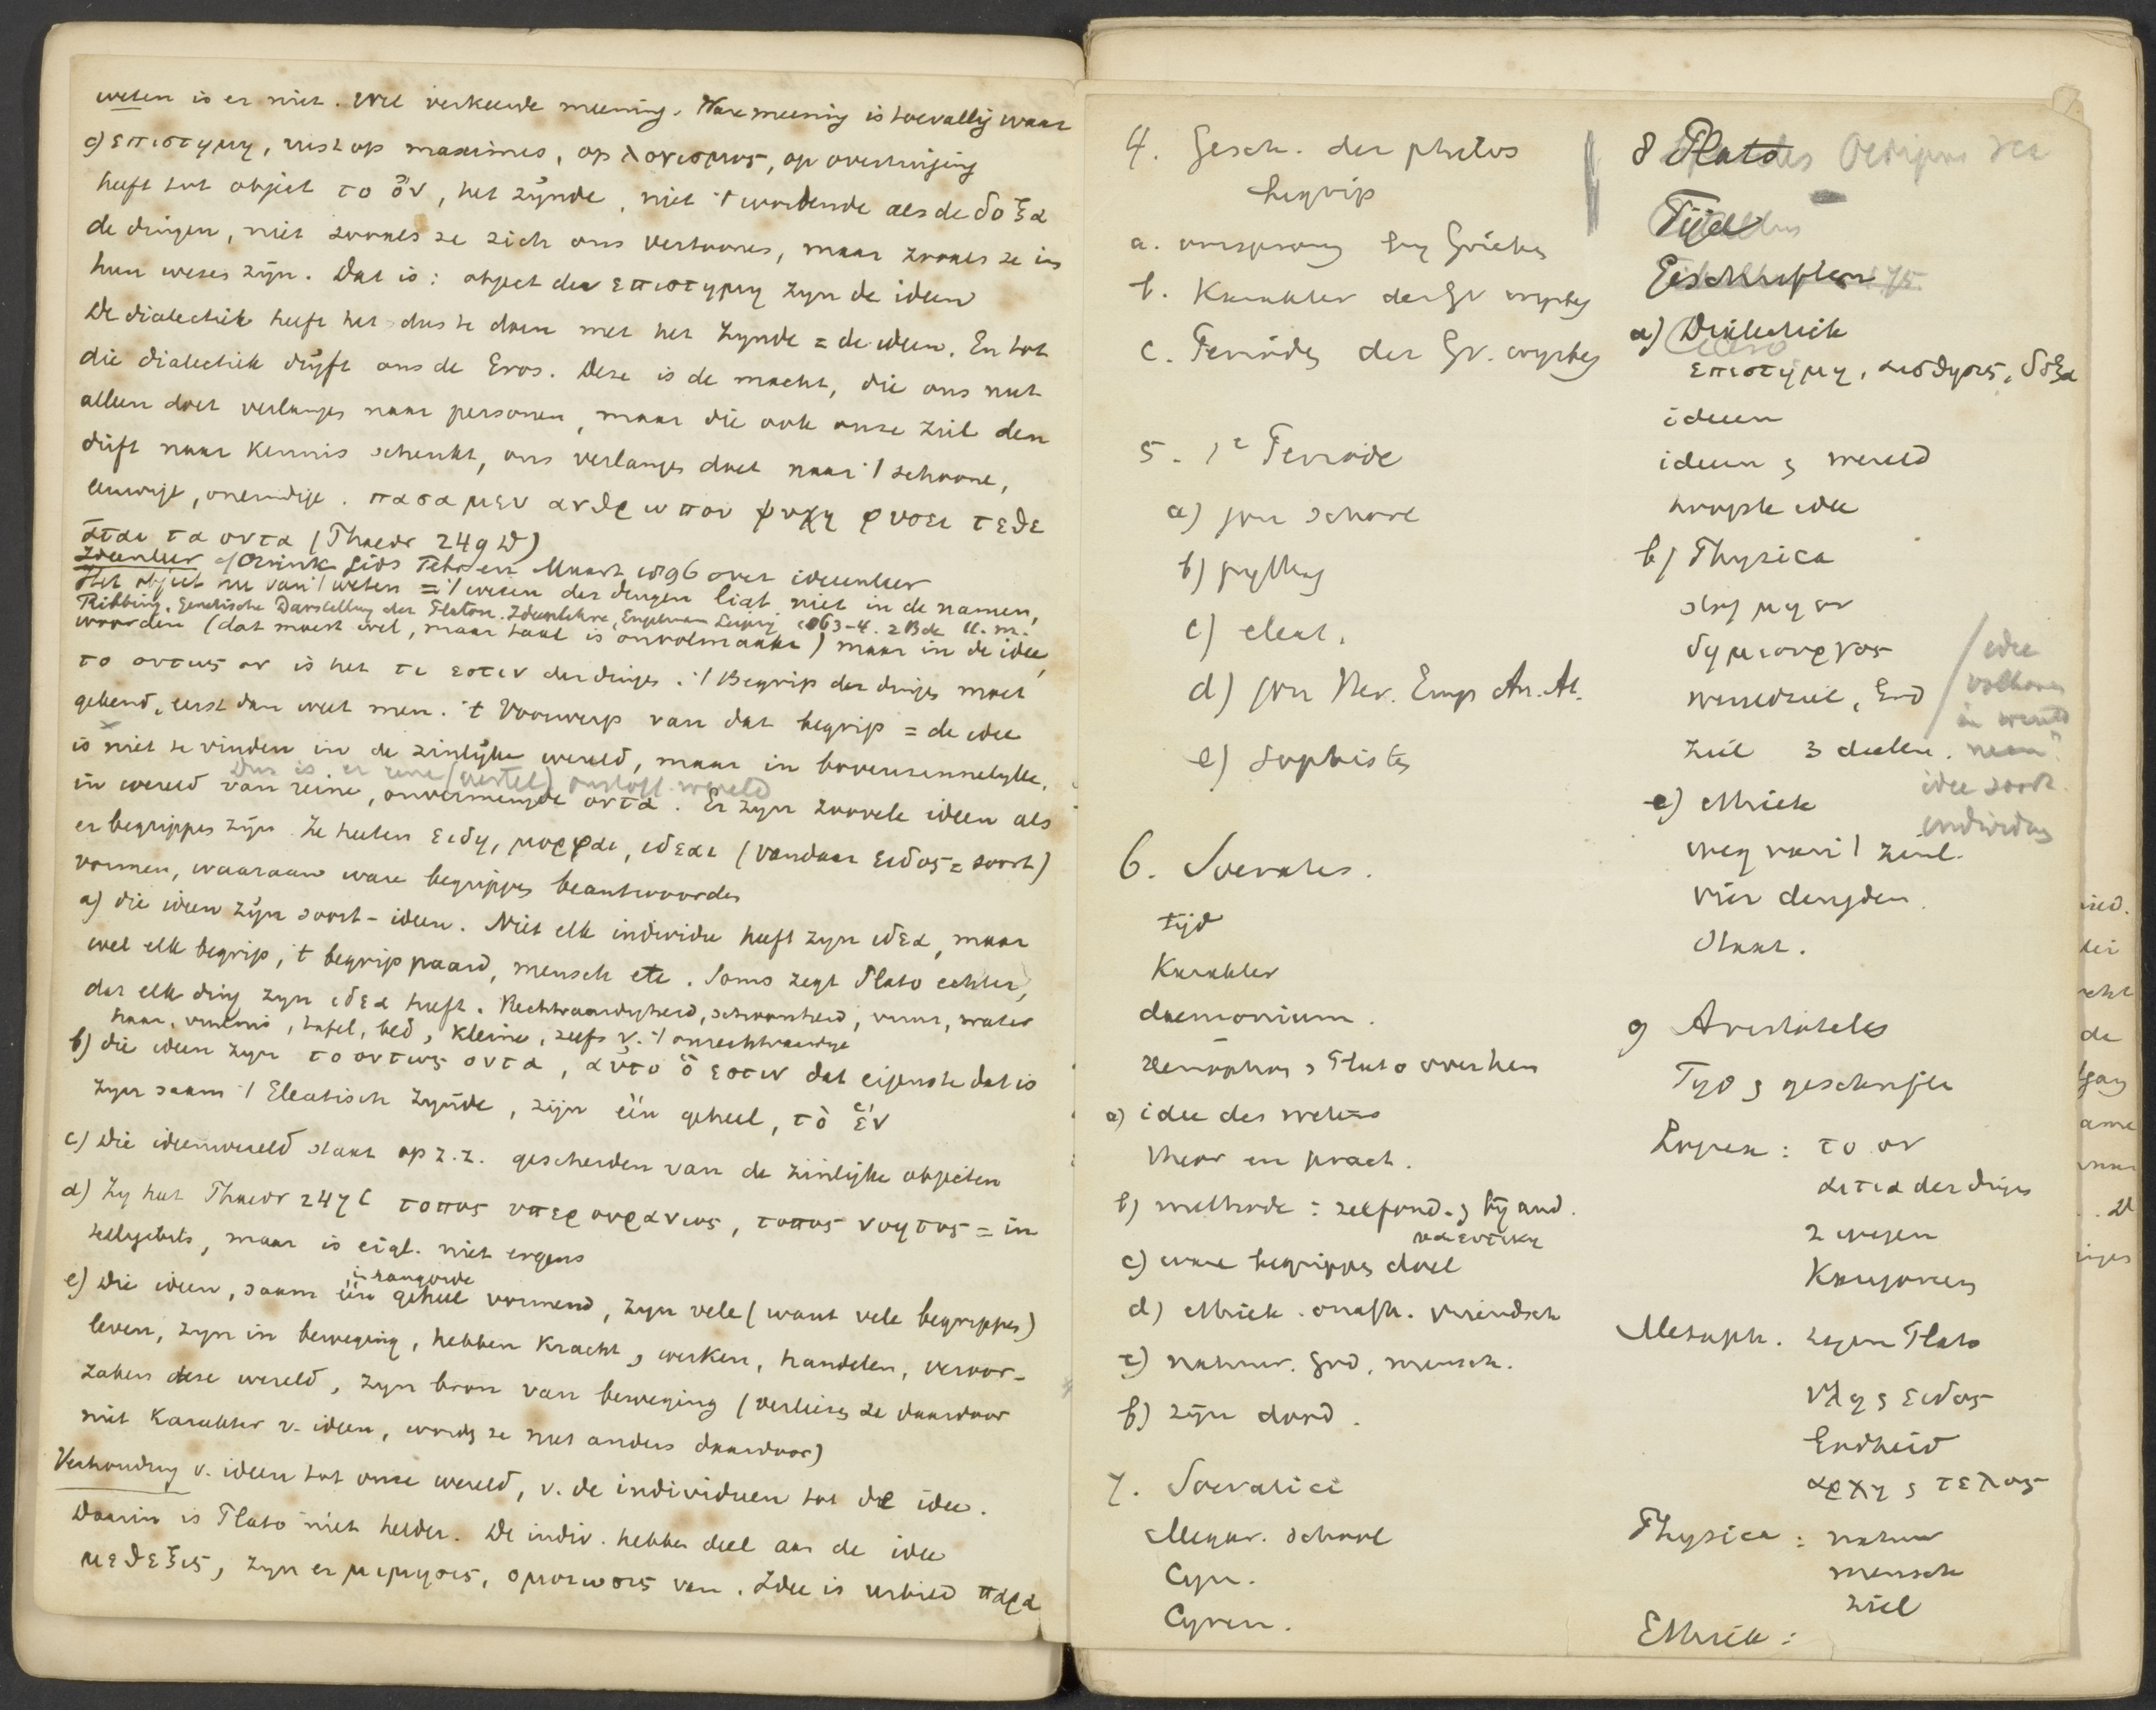 weten is er niet. Wel verkeerde meening. Ware meening is toevallig waar
c) επιστημη, rust op maximes, op λογισμος, op overtuiging
heeft tot object το ὄν, het zijnde, niet 't wordende als de δοξα
de dingen, niet zooals ze zich ons vertoonen, maar zooals ze in
hun wezen zijn. Dat is: object der επιστημη zijn de ideen
De dialectiek heeft het dus te doen met het Zynde = de ideen. En tot
die dialectiek dryft ons de Eros. Deze is de macht, die ons niet
alleen doet verlangen naar personen, maar die ook onze ziel den
drift naar Kennis schenkt, ons verlangen doet naar 't schoone,
eeuwige, oneindige. πασα μεν ανθρωπου ψυχη φυσει τεθε
αται τα οντα (Phaedr 249 D)
Ideenleer cf Ovink Gids Febr en Maart 1896 over ideenleer
Het object nu van 't weten = 't wezen der dingen ligt niet in de namen,
Ribbing, Genetische Darstellung der Platon. Ideenlehre, Engelmann Leipzig 1863-4. 2 Bde 11. m.
woorden (dat moest wel, maar taal is onvolmaakt) maar in de idee,
το οντως ον is het τι εστιν der dingen. 't Begrip der dinges moet
gekend, eerst dan weet men. 't Voorwerp van dat begrip = de idee
is niet te vinden in de zinlijke wereld, maar in bovenzinnelyke,
Dus is er eene (veetel) onstoff. wereld
in wereld van reine, onvermengde οντα. Er zyn zoovele ideen als
er begrippen zijn. Ze heeten ειδη, μορφαι, ιδεαι (vandaar ειδος = soort)
vormen, waaraan ware begrippen beantwoorden
a) die ideen zijn soort-ideen. Niet elk individu heeft zyn ιδεα, maar
wel elk begrip, 't begrip paard, mensch etc. Soms zegt Plato echter,
dat elk ding zyn ιδεα heeft. Rechtvaardigheid, schoonheid, vuur, water
haar, vuilnis, tafel, bed, kleine, zelfs v. 't onrechtvaardige
b) die ideen zyn το οντως οντα, αὐτο ὅ εστιν dat eigenste dat is
zyn saam 't Eleatisch Zynde, zijn één geheel, τὸ ἕν
c) Die ideenwereld staat op z.z. gescheiden van de zinlijke objecten
d) Zy hut Phaedr 247 C τοπος υπερουρανιος, τοπος νοητος = in
hellychts, maar is eigl. niet ergens
in rangorde
e) Die ideen, saam één geheel vormend, zyn vele (want vele begrippen)
leven, zyn in beweging, hebben Kracht, werken, handelen, veroor-
zaken deze wereld, zyn bron van beweging (verliezen ze daardoor
niet Karakter v. ideen, worden ze niet anders daardoor)
Verhouding v. ideen tot onze wereld, v. de individuen tot de idee.
Daarin is Plato niet helder. De indiv. hebben deel aan de idee
μεθεξις, zyn er μιμησις, ομοιωσις van. Idee is urbild παρα
4. Gesch. der philos
begrip
a. oorsprong by Grieken
b. Karakter der Gr wysbeg
c. Perioden der Gr. wysbeg
5. 1e Periode
a) jon school
b) pythag
c) eleat.
d) jon Her. Emp An. At.
e) Sophisten
6. Socrates.
tijd
Karakter
daemonium.
Xenophon, Plato over hem
a) idee des wetens
theor en pract.
b) methode: zelfond. , by and.
μαιευτικη
c) ware begrippen doel
d) ethiek. onafh. vriendsch
e) natuur. God. mensch.
f) zijn dood.
7. Socratici
Megar. school
Cyn.
Cyren.
8 Plato
Tijd
Geschriften
a) Dialectiek
επιστημη, αισθησις, δοξα
ideen
ideen , wereld
hoogste idee
b) Physica
stof μη ον
δημιουργος
wereldziel, God
ziel 3 deelen.
idee
volkomen
in wereld
neen
idee soort
individuen
c) ethiek
weg van 't zinl.
vier deugden.
Staat.
9 Aristoteles
Tyd , geschriften
Logica: το ον
αιτια der dinges
2 wegen
Kategorien
Metaph. tegen Plato
υλη , ειδος
Godheid
αρχη , τελος
Physica: natuur
mensch
ziel
Ethiek: